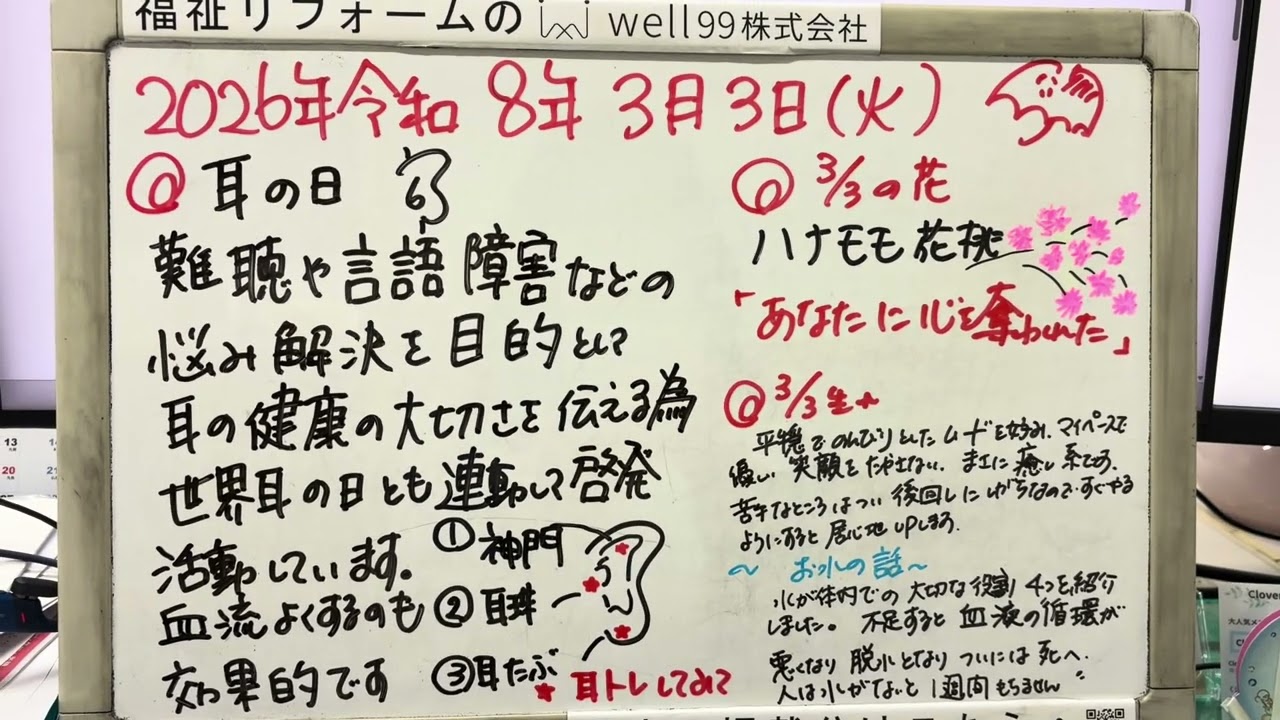 福祉リフォームの well99株式会社
2026年令和8年3月3日(火)
耳の日
難聴や言語障害などの
悩み解決を目的として
耳の健康の大切さを伝える為
世界耳の日とも連動して啓発
活動しています。
血流よくするのも
効果的です
①神門
②耳珠
③耳たぶ
耳トレしてみて
3/3の花
ハナモモ花桃
「あなたに心を奪われた」
3/3生
平穏でのんびりとしたムードを好み、マイペースで
優しい笑顔をたやさない、まさに癒し系です。
苦手なところはつい後回しにしがちなので、すぐやる
ようにすると居心地upします。
～お水の話～
水が体内での大切な役割4つを紹介
しました。不足すると血液の循環が
悪くなり脱水となりついには死へ
人は水がないと1週間もちません
13
20
Clover